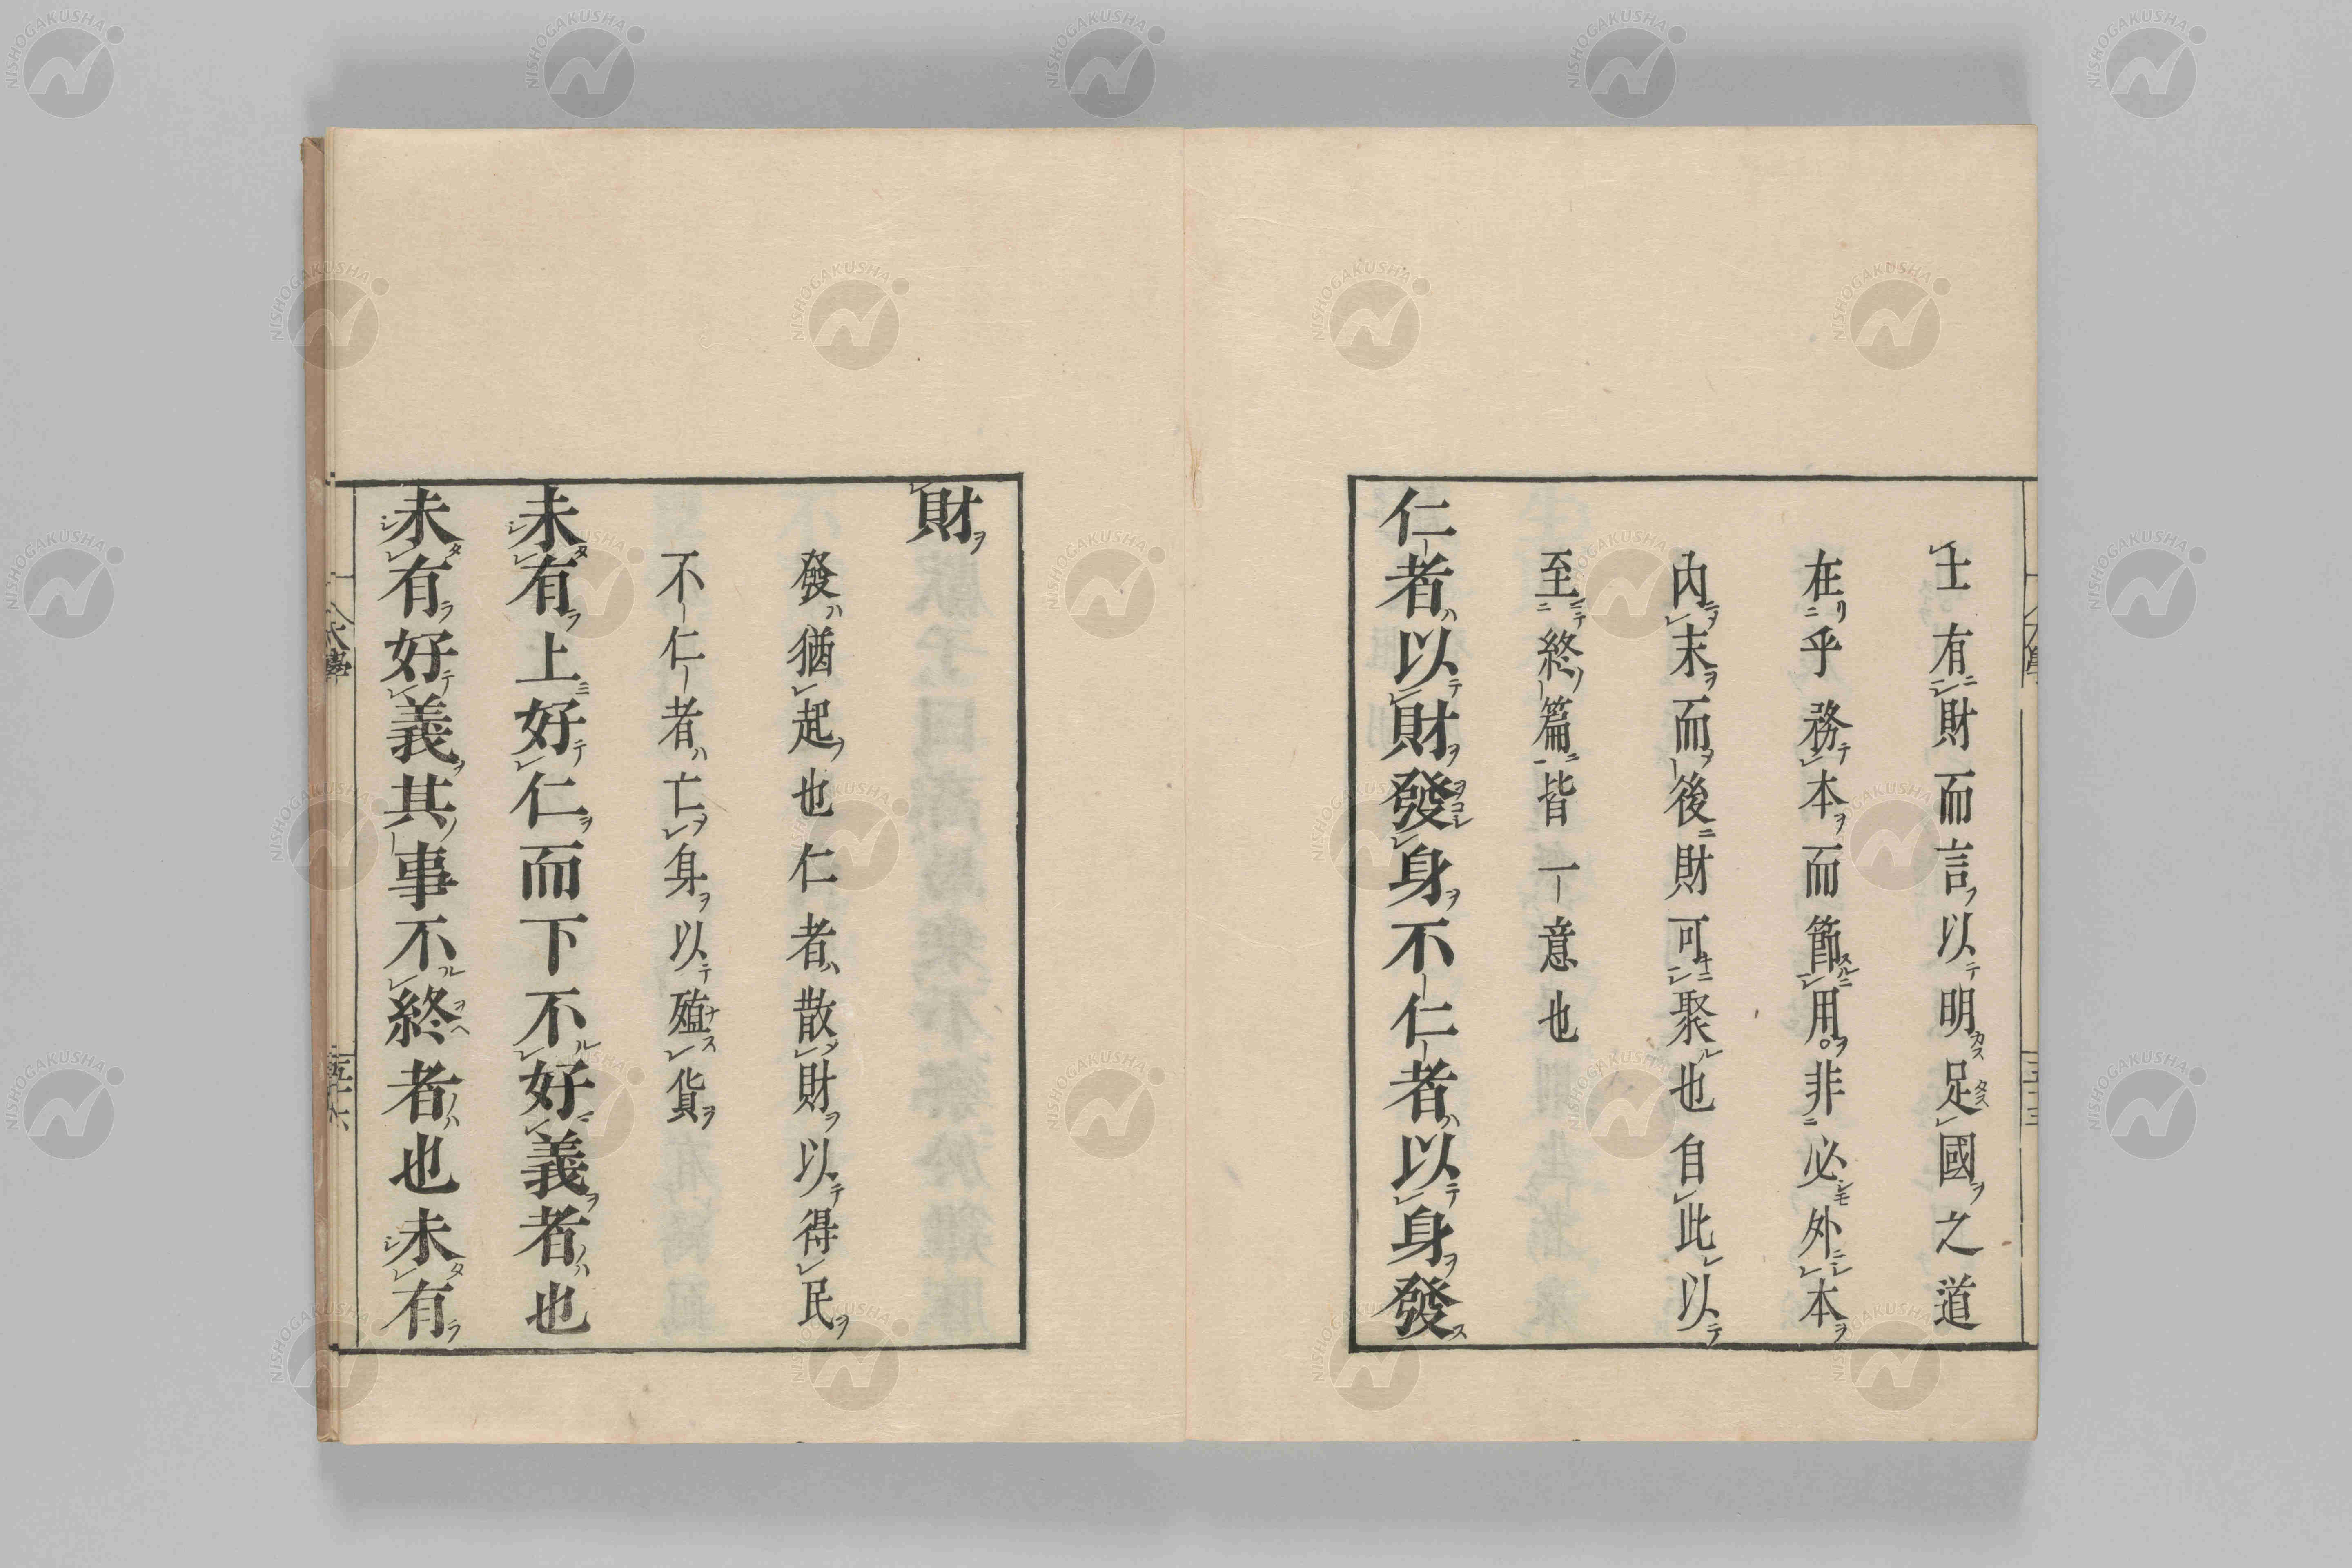 土有財而言以明足國之道
在乎務本而節用非必外本
內末而後財可聚也自此以
至終篇皆一意也
仁者以財發身不仁者以身發
財
發猶起也仁者散財以得民
不仁者亡身以殖貨
未有上好仁而下不好義者也
未有好義其事不終者也未有
大學
NISHOGAKUSHA